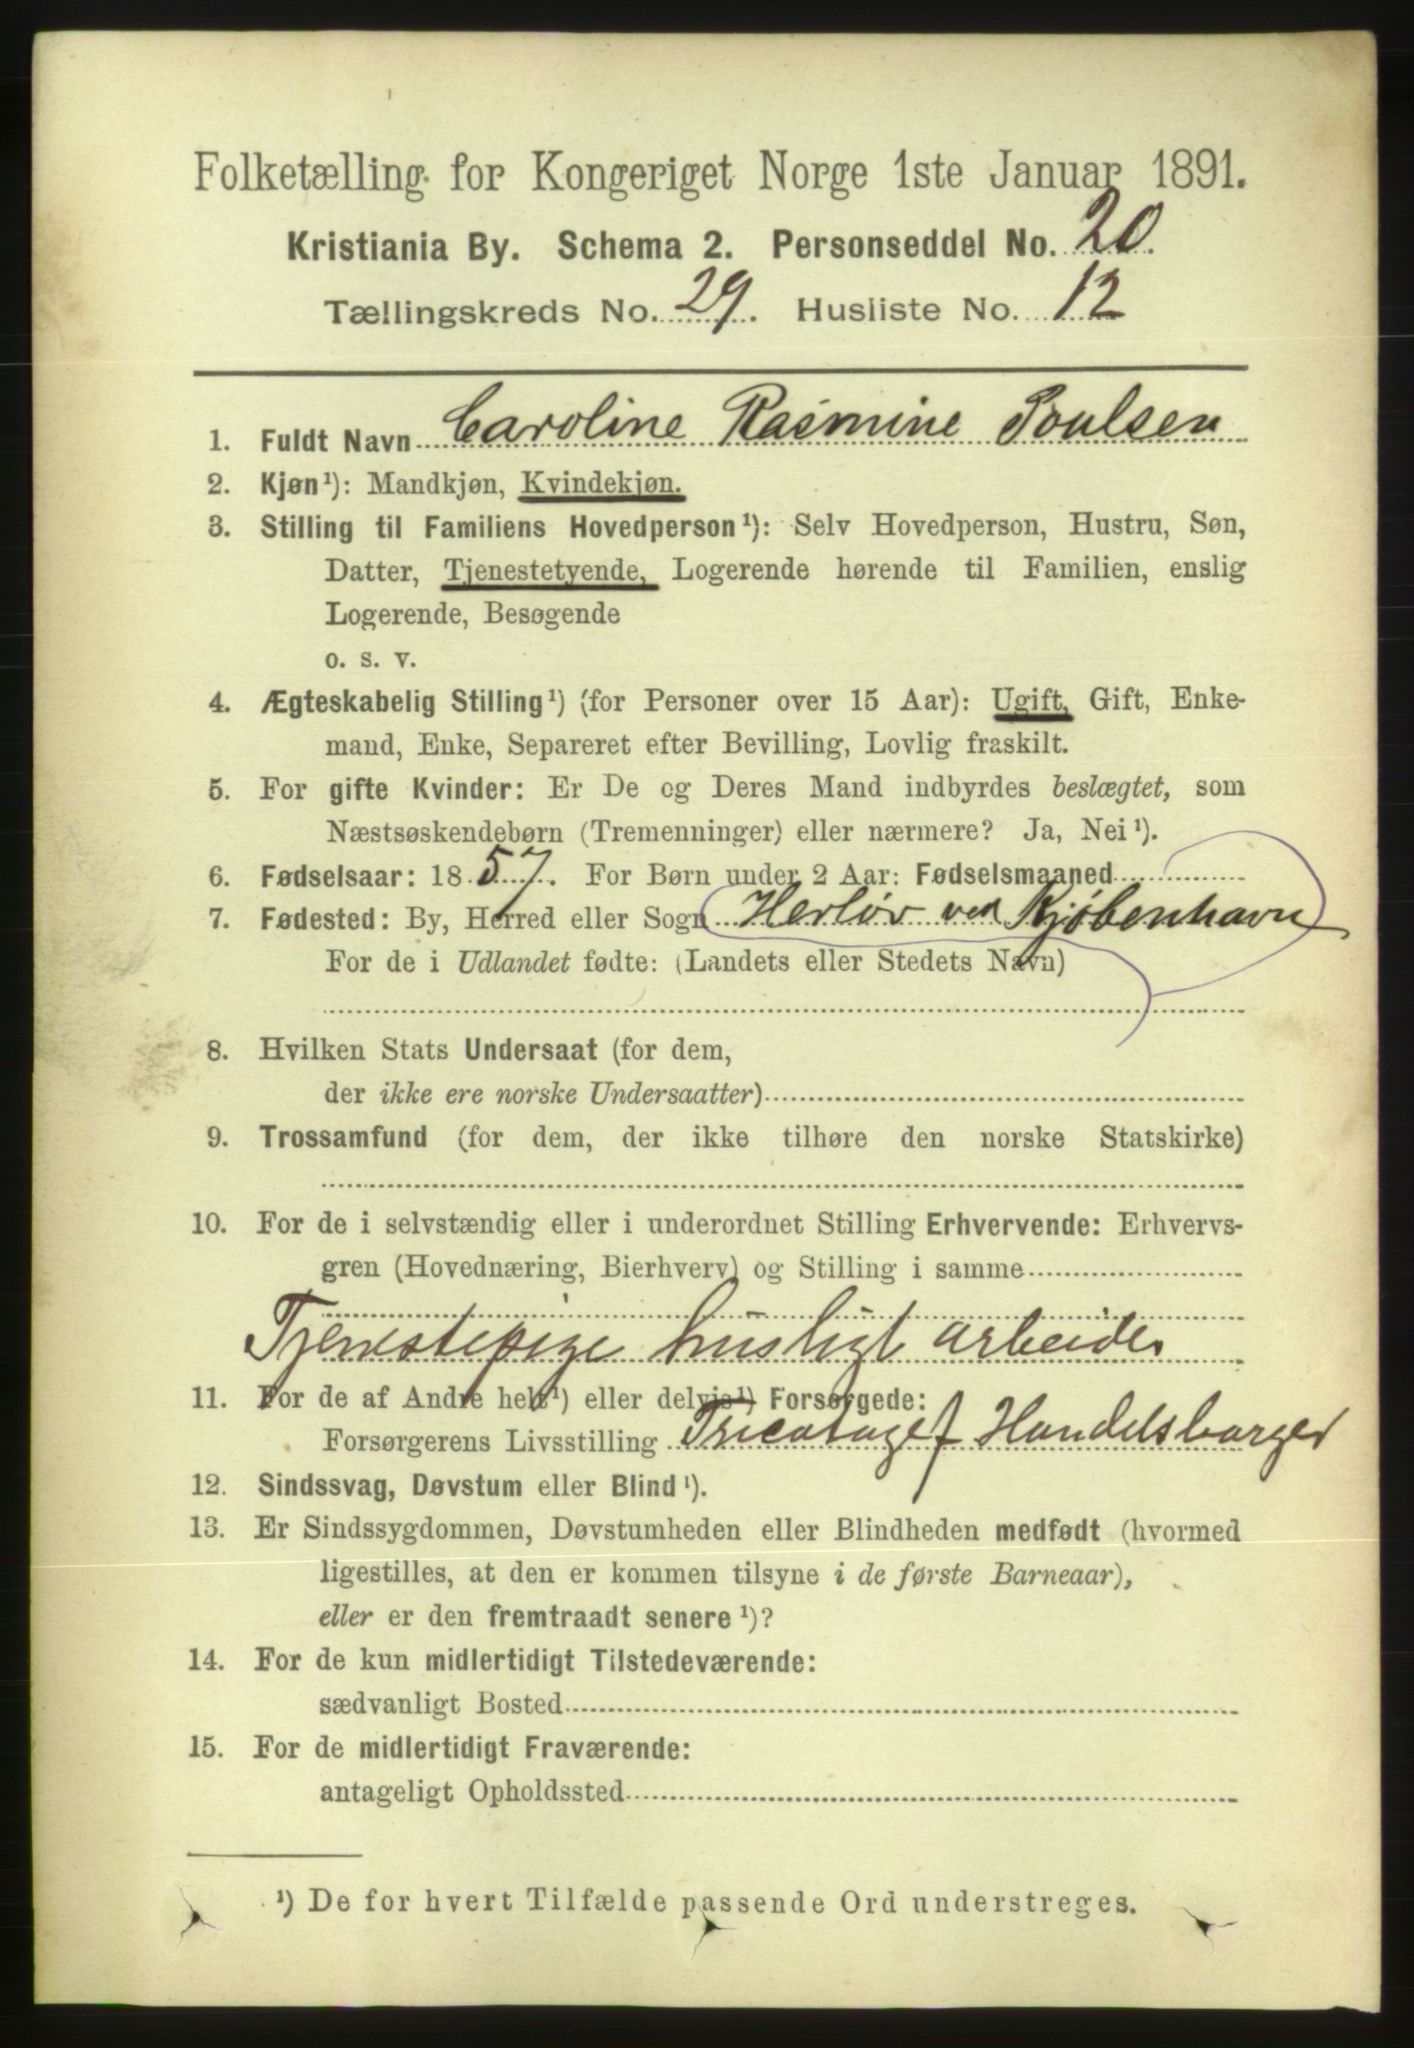 Folketælling for Kongeriget Norge 1ste Januar 1891.
Kristiania By. Schema 2. Personseddel No. 20.
Tællingskreds No. 29. Husliste No. 12
1. Fuldt Navn Caroline Rasmine Poulsen
2. Kjøn¹): Mandkjøn, Kvindekjøn.
3. Stilling til Familiens Hovedperson¹): Selv Hovedperson, Hustru, Søn,
Datter, Tjenestetyende, Logerende hørende til Familien, enslig
Logerende, Besøgende
o. s. v.
4. Ægteskabelig Stilling¹) (for Personer over 15 Aar): Ugift, Gift, Enke-
mand, Enke, Separeret efter Bevilling, Lovlig fraskilt.
5. For gifte Kvinder: Er De og Deres Mand indbyrdes beslægtet, som
Næstsøskendebørn (Tremenninger) eller nærmere? Ja, Nei¹).
6. Fødselsaar: 1857. For Børn under 2 Aar: Fødselsmaaned
7. Fødested: By, Herred eller Sogn Herløv ved Kjøbenhavn
For de i Udlandet fødte: (Landets eller Stedets Navn)
8. Hvilken Stats Undersaat (for dem,
der ikke ere norske Undersaatter)
9. Trossamfund (for dem, der ikke tilhøre den norske Statskirke)
10. For de i selvstændig eller i underordnet Stilling Erhvervende: Erhvervs-
gren (Hovednæring, Bierhverv) og Stilling i samme
Tjenestepige husligt arbeide
11. For de af Andre helt¹) eller delvis¹) Forsørgede:
Forsørgerens Livsstilling Tricotagef Handelsborger
12. Sindssvag, Døvstum eller Blind¹).
13. Er Sindssygdommen, Døvstumheden eller Blindheden medfødt (hvormed
ligestilles, at den er kommen tilsyne i de første Barneaar),
eller er den fremtraadt senere¹)?
14. For de kun midlertidigt Tilstedeværende:
sædvanligt Bosted
15. For de midlertidigt Fraværende:
antageligt Opholdssted
¹) De for hvert Tilfælde passende Ord understreges.